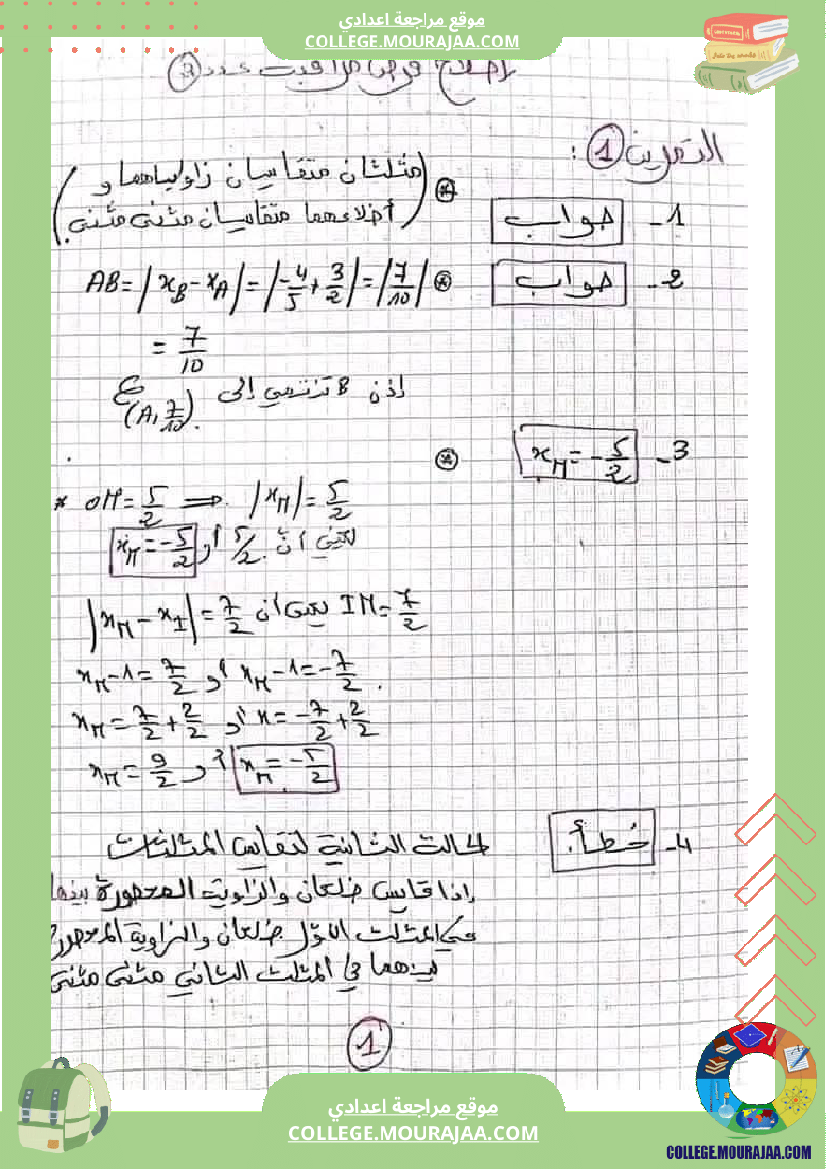 موقع مراجعة اعدادي
COLLEGE.MOURAJAA.COM
إصلاح فرض مراقبة عدد 3
التمرين 1 :
1- صواب
(مثلثان متقايسان زاويتاهما و
أضلاعهما متقايسان مثنى مثنى)
2- صواب
AB = |x_B - x_A| = |-4/5 + 3/2| = |7/10|
= 7/10
إذن B تنتمي إلى
C(A, 7/10).
3- x_M = -5/2
* OM = 5/2 ⟹ |x_M| = 5/2
يعني أنّ 5/2 أو x_M = -5/2
IM = 7/2 يعني أن |x_M - x_I| = 7/2
x_M - 1 = 7/2 أو x_M - 1 = -7/2.
x_M = 7/2 + 2/2 أو x = -7/2 + 2/2
x_M = 9/2 أو x_M = -5/2
4- خطأ.
الحالة الثانية لتقايس المثلثات
إذا قايس ضلعان والزاوية المحصورة بينهما
في المثلث الأوّل ضلعان والزاوية المحصورة
بينهما في المثلث الثاني مثنى مثنى
1
موقع مراجعة اعدادي
COLLEGE.MOURAJAA.COM
COLLEGE.MOURAJAA.COM